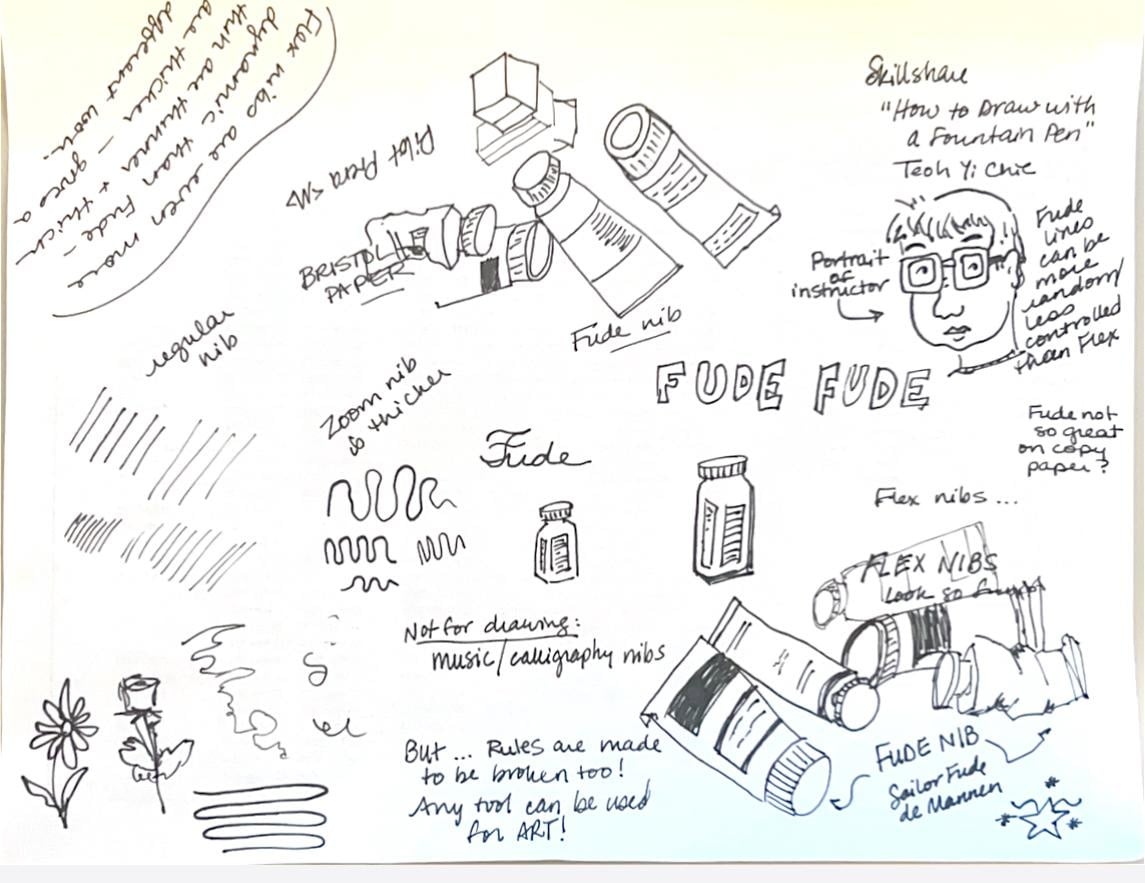 Flex nibs are even more
dynamic than Fude -
thin are thinner + thick
are thicker - gives a
different
Pilot Prera
BRISTOL
PAPER
Skillshare
"How to Draw with
a Fountain Pen"
Teoh Yi Chie
Portrait
of
instructor
Fude
lines
can be
more
random/
less
controlled
than Flex
regular
nib
Fude nib
FUDE FUDE
Zoom nib
is thicker
Fude
Fude not
so great
on copy
paper?
Flex nibs...
FLEX NIBS
Look so
Not for drawing:
music/calligraphy nibs
But ... Rules are made
to be broken too!
Any tool can be used
for ART!
FUDE NIB
Sailor Fude
de Mannen